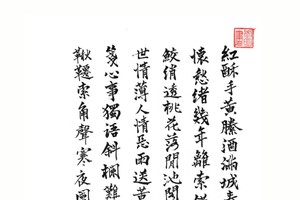 紅酥手黃縢酒滿城春
懷愁緒幾年離索
鮫綃透桃花落閒池閣
世情薄人情惡雨送黃
箋心事獨語斜欄難
鞦韆索角聲寒夜闌